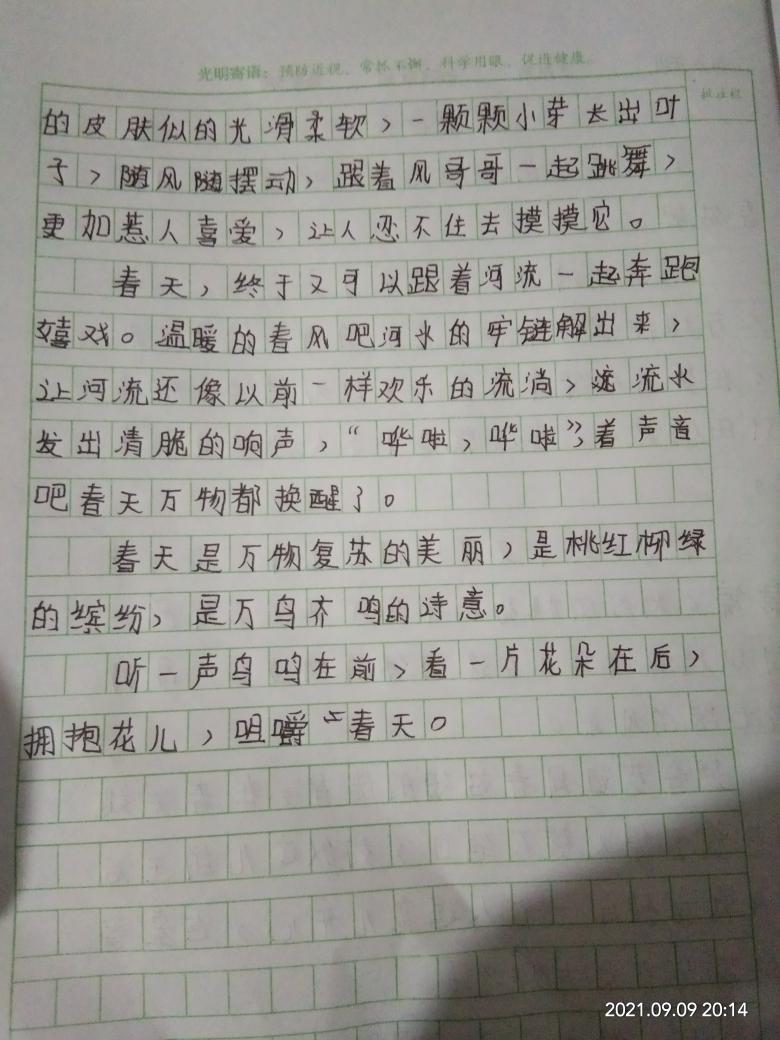 光明寄语：预防近视、常抓不懈、科学用眼、促进健康。
批注栏
的皮肤似的光滑柔软，一颗颗小芽长出叶
子，随风随摆动，跟着风哥哥一起跳舞，
更加惹人喜爱，让人忍不住去摸摸它。
春天，终于又可以跟着河流一起奔跑
嬉戏。温暖的春风吧河水的牢链解出来，
让河流还像以前一样欢乐的流淌，流水
发出清脆的响声，“哗啦，哗啦”，着声音
吧春天万物都换醒了。
春天是万物复苏的美丽，是桃红柳绿
的缤纷，是万鸟齐鸣的诗意。
听一声鸟鸣在前，看一片花朵在后，
拥抱花儿，咀嚼春天。
2021.09.09 20:14